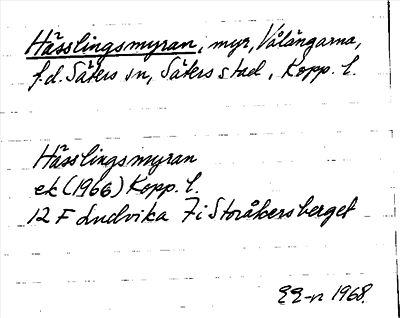 Hässlingsmyran, myr, Vålångarna,
f.d. Säters sn, Säters stad, Kopp. l.
Hässlingsmyran
ek (1966) Kopp. l.
12 F Ludvika 7 i Storåkersberget
1968.